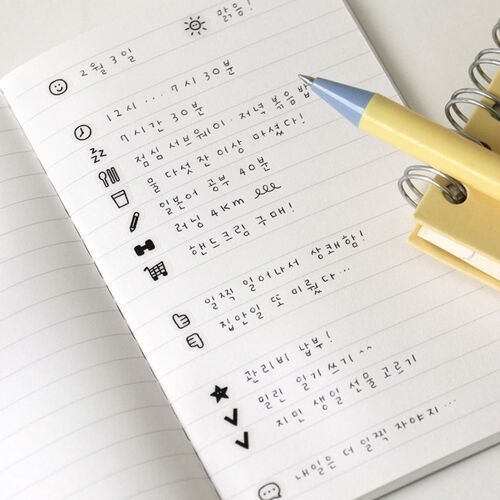 2월 3일 맑음!
12시 ... 7시 30분
7시간 30분
점심 서브웨이 · 저녁 볶음밥
물 다섯 잔 이상 마셨다!
일본어 공부 40분
러닝 4km
핸드크림 구매!
일찍 일어나서 상쾌함!
집안일 또 미뤘다...
관리비 납부!
밀린 일기 쓰기 ^^
지민 생일 선물 고르기
내일은 더 일찍 자야지...